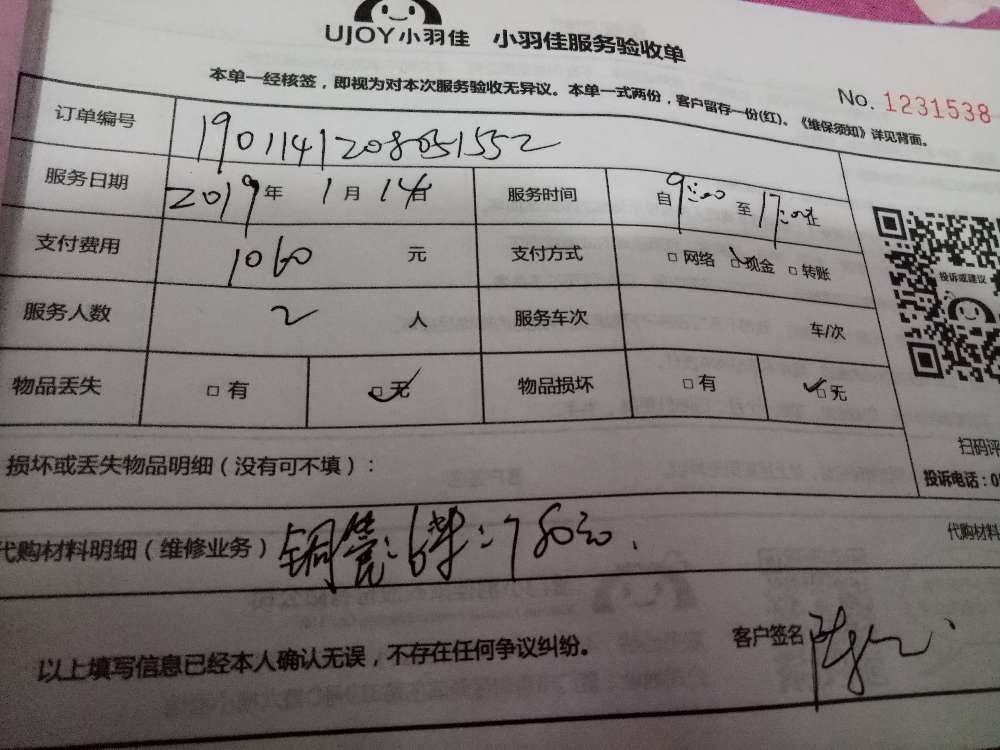 UJOY小羽佳 小羽佳服务验收单
本单一经核签，即视为对本次服务验收无异议。本单一式两份，客户留存一份(红)。《维保须知》详见背面。
No. 1231538
订单编号 1901141208051552
服务日期 2019年 1月 14日 服务时间 自9:00至17:00止
支付费用 1060 元 支付方式 □网络 □现金 □转账
服务人数 2 人 服务车次 车/次
物品丢失 □有 □无 物品损坏 □有 □无
投诉或建议
扫码评
投诉电话：0
损坏或丢失物品明细（没有可不填）：
代购材料明细（维修业务） 铜管：6米：780元.
代购材料
以上填写信息已经本人确认无误，不存在任何争议纠纷。
客户签名